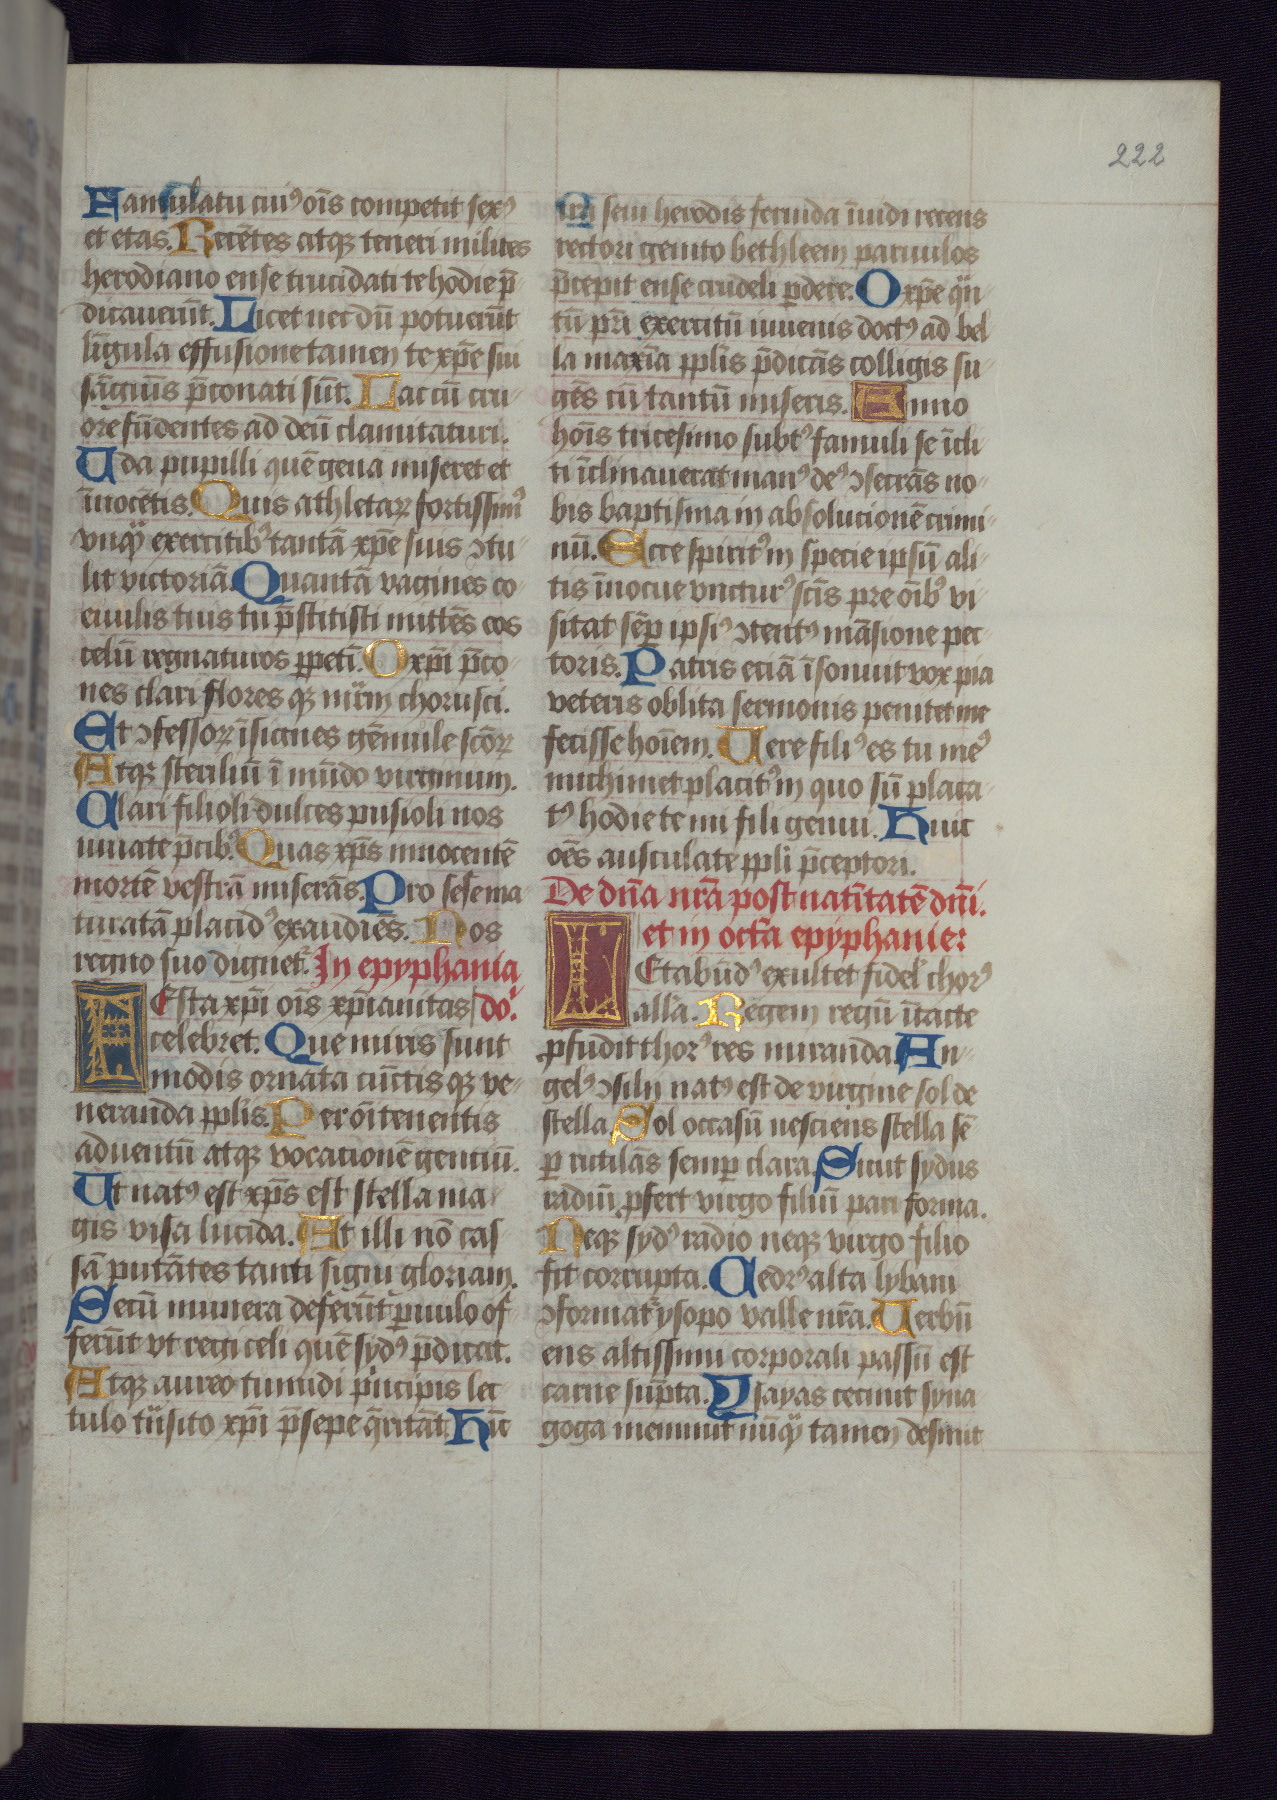 222
Famulatu cuiꝰ oīs competit sexꝰ
et etas. Recētes atqꝫ teneri milites
herodiano ense trucidati te hodie p̄
dicauerūt. Licet nec dū potuerūt
līgula effusione tamen te xp̄e sui
sāguīs p̄conati sūt. Lac cū cru
ore fūdentes ad deū clamitaturi.
Uda pupilli quē gena miseret et
īnocētis. Quis athletaꝝ fortissimꝰ
vnqͣꝫ exercitibꝰ tantā xp̄e suis ꝯtu
lit victoriā. Quantā vagiues co
euulis tuis tu p̄stitisti mittēs eos
celū regnaturos ꝑpetī. O xp̄i p̄co
nes clari flores qꝫ mr̄m chorusci.
Et ꝯfessoꝝ īsignes gēmule scōꝝ
Atqꝫ steriliū ī mūdo virginum.
Clari filioli dulces pusioli nos
iuuate p̄cibꝰ. Quas xp̄s innocentē
mortē vestrā miserās. Pro sese ma
turatā placidꝰ exaudiēs. Nos
regno suo dignetᷣ. In epyphania
Festa xp̄i oīs xp̄ianitas do.
celebret. Que miris sunt
modis ornata cūctis qꝫ ve
neranda pplis. Per oītenentis
aduentū atqꝫ vocationē genciū.
Ut natꝰ est xp̄s est stella ma
gis visa lucida. At illi nō cas
sā putātes tanti signi gloriam.
Secū munera deferūt ꝑuulo of
ferūt vt regi celi quē sydꝰ p̄dicat.
Atqꝫ aureo tumidi pͥncipis lec
tulo trͣsito xp̄i p̄sepe qͣritāt. Hīc
ira seui herodis feruida īuidi recens
rectori genito bethleem paruulos
p̄cepit ense crudeli ꝑdere. O xp̄e qͣn
tū pr̄i exercitū iuuenis doctꝰ ad bel
la maxīa pplīs p̄dicās colligis su
gēs cū tantū miseris. Anno
hoīs tricesimo subtꝰ famuli se īcli
ti īclinauerat manꝰ deꝰ ꝯsecrās no
bis baptisma in absolucionē crimi
nū. Ecce spiritꝰ in specie ipsū ali
tis īnocue vncturꝰ scīs pre oībꝰ vi
sitat sēꝑ ipsiꝰ ꝯtentꝰ māsione pec
toris. Patris eciā īsonuit vox pia
veteris oblita sermonis penitet me
fecisse hoīem. Uere filiꝰ es tu meꝰ
michimet placitꝰ in quo sū placa
tꝰ hodie te mi fili genui. Huic
oēs ausculate ppli p̄ceptori.
De dn̄a nr̄a post natītatē dn̄i.
et in octa epyphanie:
Letabūdꝰ exultet fidelꝭ chorꝰ
alla. Regem regū ītacte
ꝓfudit thorꝰ res miranda. An
gelꝰ ꝯsilii natꝰ est de virgine sol de
stella. Sol occasū nesciens stella sē
ꝑ rutilās semꝑ clara. Sicut sydus
radiū ꝓfert virgo filiū pari forma.
Neqꝫ sydꝰ radio neqꝫ virgo filio
fit corrupta. Cedrꝰ alta lybani
ꝯformatᷣ ysopo valle nr̄a. Uerbū
ens altissimi corporali passū est
carne sūpta. Ysayas cecinit syna
goga meminit nūqͣꝫ tamen desinit